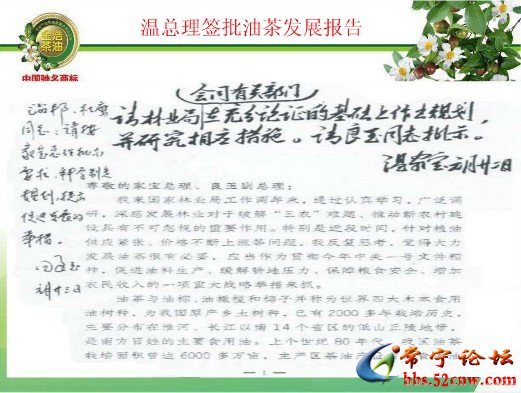 温总理签批油茶发展报告
金浩
茶油
中国驰名商标
会同有关部门
请林业局在充分论证的基础上作出规划，
并研究相应措施。请良玉同志批示。
温家宝 九月廿一日
同志：请按
家宝总理批示
规划，提出
促进发展的
举措。
回良玉
尊敬的家宝总理、良玉副总理：
我来国家林业局工作两年来，通过认真学习，广泛调
研，深感发展林业对于破解“三农”难题、推动新农村建
设具有不可忽视的重要作用。特别是近段时间，针对粮油
供应紧张、价格不断上涨等问题，我反复思考，觉得大力
发展油茶很有必要，应当作为贯彻今年中央一号文件精
神，促进油料生产、缓解耕地压力、保障粮食安全、增加
农民收入的一项重大战略举措来抓。
油茶与油棕、油橄榄和椰子并称为世界四大木本食用
油树种，为我国原产乡土树种，已有2000多年栽培历史，
主要分布在淮河、长江以南14个省区的低山丘陵地带，
是南方百姓的主要食用油。上个世纪80年代，我国油茶
栽培面积曾达6000多万亩，主产区茶油产
1
常宁论坛
bbs.52cnw.com